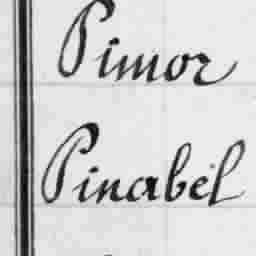 Pimor
Pinabel